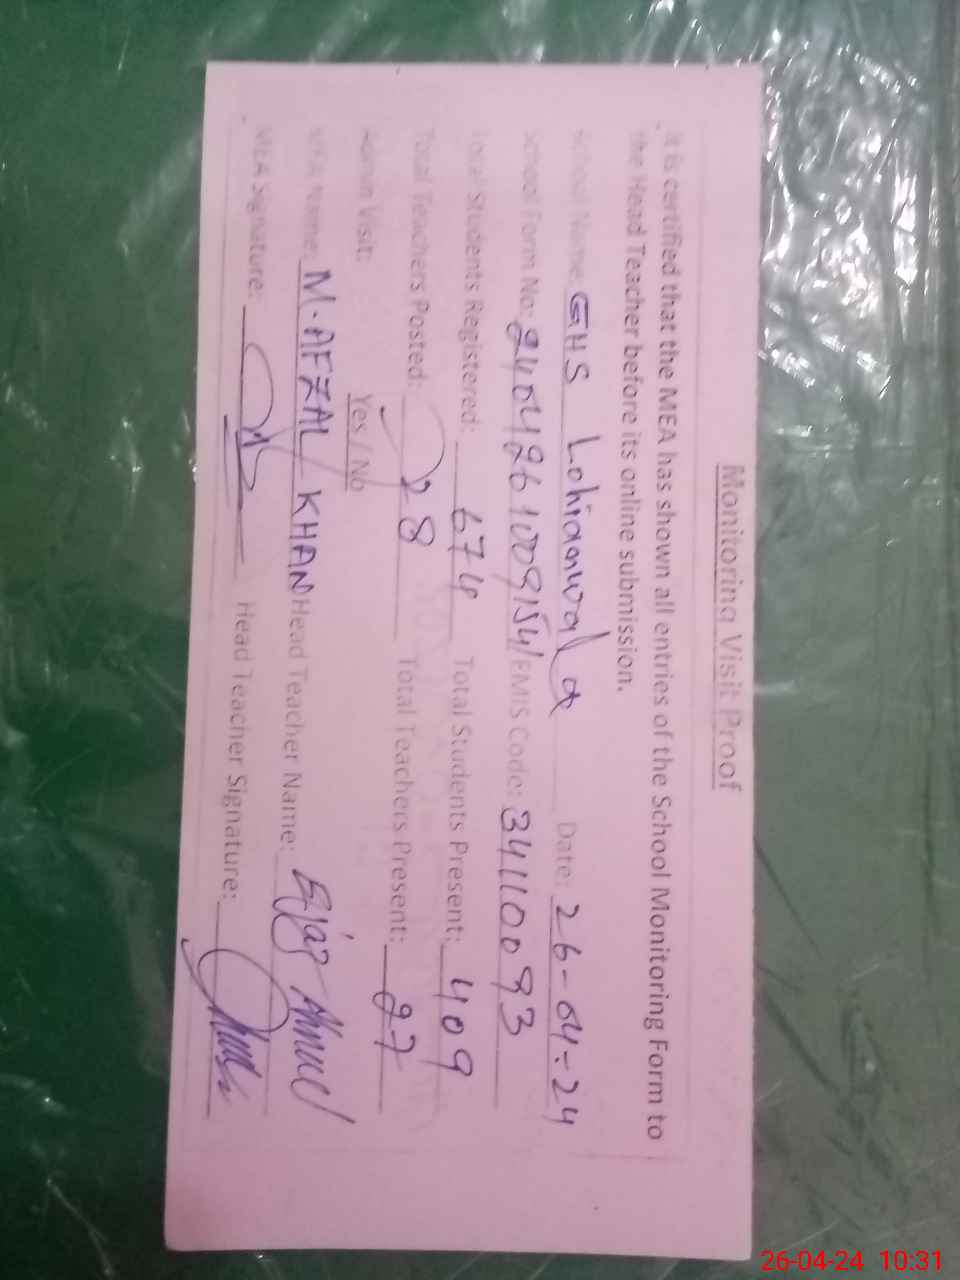 Monitoring Visit Proof
It is certified that the MEA has shown all entries of the School Monitoring Form to
the Head Teacher before its online submission.
School Name: GHS Lohianwala Date: 26-04-24
School Form No: 2404261009154/ EMIS Code: 34110093
Total Students Registered: 674 Total Students Present: 409
Total Teachers Posted: 28 Total Teachers Present: 27
Admin Visit: Yes / No
MEA Name: M.AFZAL KHAN Head Teacher Name: Ejaz Ahmed
MEA Signature: Head Teacher Signature:
26-04-24 10:31